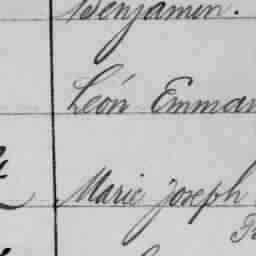 Benjamin.
León Emman
Marie Joseph